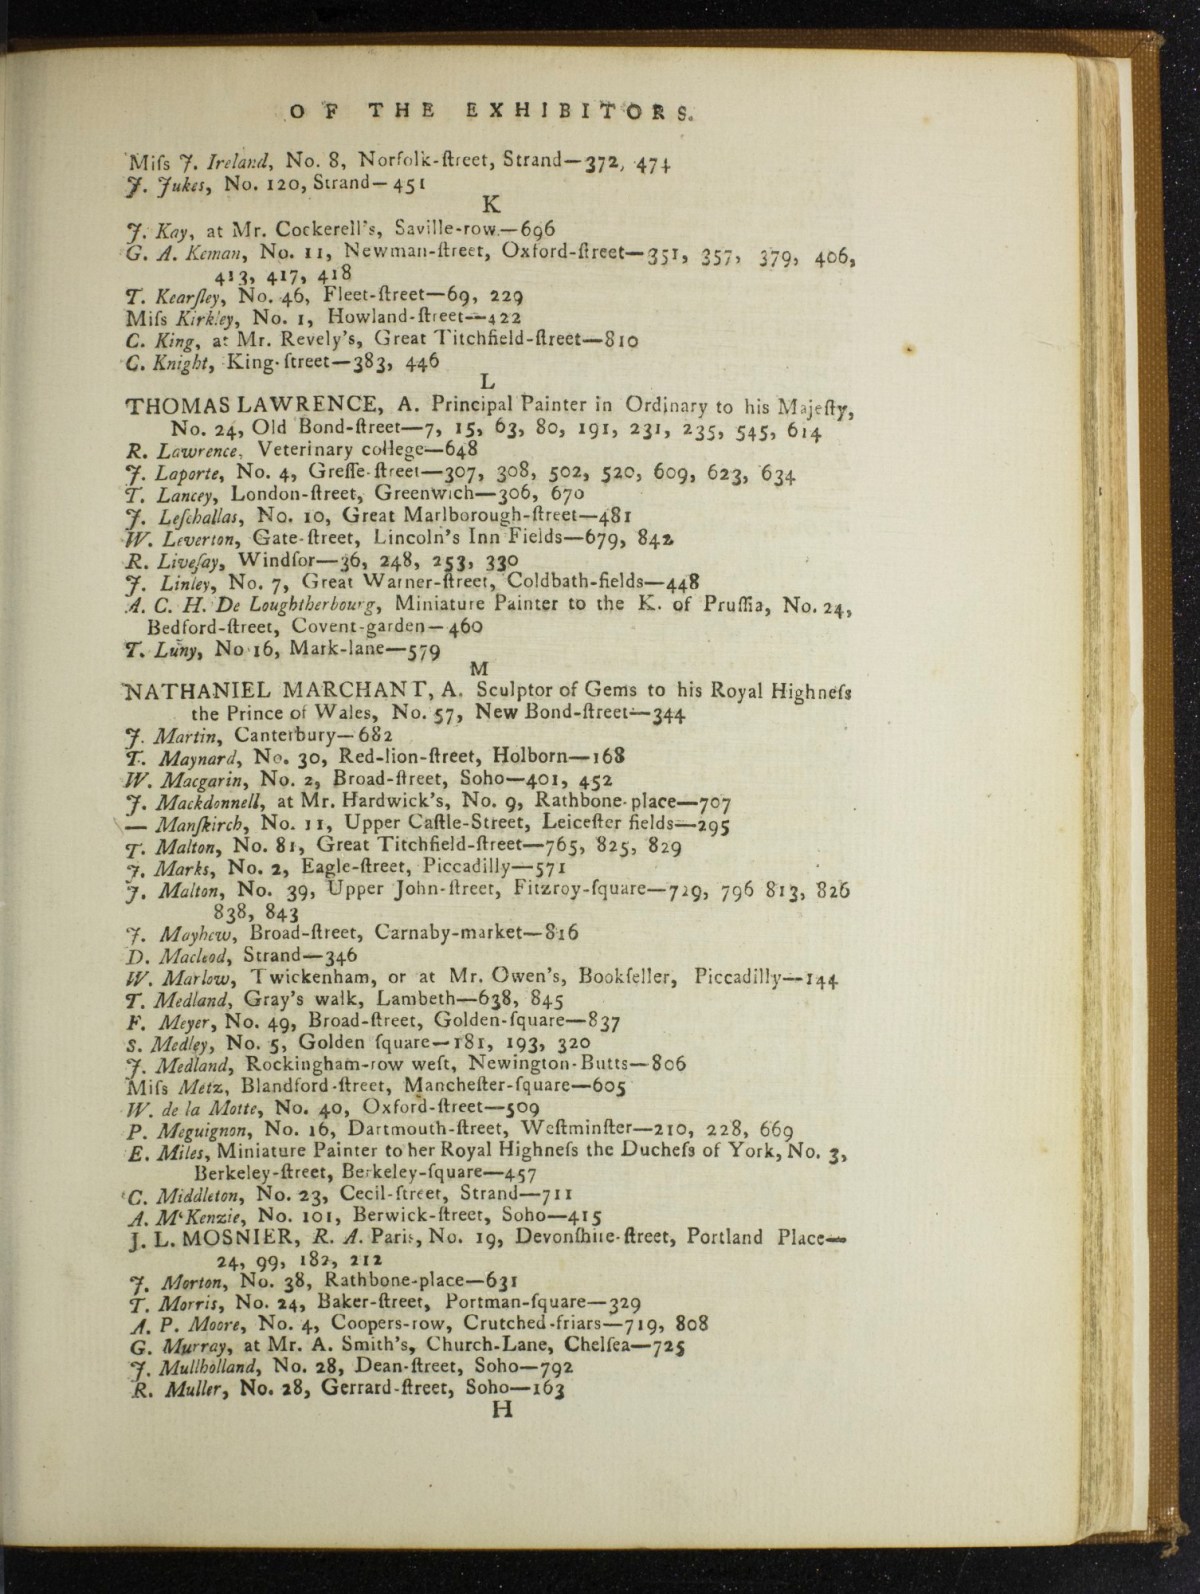 OF THE EXHIBITORS.
Miſs J. Ireland, No. 8, Norfolk-ſtreet, Strand—372, 474
J. Jukes, No. 120, Strand—451
K
J. Kay, at Mr. Cockerell's, Saville-row.—696
G. A. Keman, No. 11, Newman-ſtreet, Oxford-ſtreet—351, 357, 379, 406,
413, 417, 418
T. Kearſley, No. 46, Fleet-ſtreet—69, 229
Miſs Kirkley, No. 1, Howland-ſtreet—422
C. King, at Mr. Revely's, Great Titchfield-ſtreet—810
C. Knight, King-ſtreet—383, 446
L
THOMAS LAWRENCE, A. Principal Painter in Ordinary to his Majeſty,
No. 24, Old Bond-ſtreet—7, 15, 63, 80, 191, 231, 235, 545, 614
R. Lawrence, Veterinary college—648
J. Laporte, No. 4, Greſſe-ſtreet—307, 308, 502, 520, 609, 623, 634
T. Lancey, London-ſtreet, Greenwich—306, 670
J. Leſchallas, No. 10, Great Marlborough-ſtreet—481
W. Leverton, Gate-ſtreet, Lincoln's Inn Fields—679, 842
R. Liveſay, Windſor—36, 248, 253, 330
J. Linley, No. 7, Great Warner-ſtreet, Coldbath-fields—448
A. C. H. De Loughtherbourg, Miniature Painter to the K. of Pruſſia, No. 24,
Bedford-ſtreet, Covent-garden—460
T. Luny, No 16, Mark-lane—579
M
NATHANIEL MARCHANT, A. Sculptor of Gems to his Royal Highneſs
the Prince of Wales, No. 57, New Bond-ſtreet—344
J. Martin, Canterbury—682
T. Maynard, No. 30, Red-lion-ſtreet, Holborn—168
W. Macgarin, No. 2, Broad-ſtreet, Soho—401, 452
J. Mackdonnell, at Mr. Hardwick's, No. 9, Rathbone-place—707
— Manſkirch, No. 11, Upper Caſtle-Street, Leiceſter fields—295
T. Malton, No. 81, Great Titchfield-ſtreet—765, 825, 829
J. Marks, No. 2, Eagle-ſtreet, Piccadilly—571
J. Malton, No. 39, Upper John-ſtreet, Fitzroy-ſquare—729, 796 813, 826
838, 843
J. Mayhew, Broad-ſtreet, Carnaby-market—816
D. Macleod, Strand—346
W. Marlow, Twickenham, or at Mr. Owen's, Bookſeller, Piccadilly—144
T. Medland, Gray's walk, Lambeth—638, 845
F. Meyer, No. 49, Broad-ſtreet, Golden-ſquare—837
S. Medley, No. 5, Golden ſquare—181, 193, 320
J. Medland, Rockingham-row weſt, Newington-Butts—806
Miſs Metz, Blandford-ſtreet, Mancheſter-ſquare—605
W. de la Motte, No. 40, Oxford-ſtreet—509
P. Meguignon, No. 16, Dartmouth-ſtreet, Weſtminſter—210, 228, 669
E. Miles, Miniature Painter to her Royal Highneſs the Ducheſs of York, No. 3,
Berkeley-ſtreet, Berkeley-ſquare—457
C. Middleton, No. 23, Cecil-ſtreet, Strand—711
A. M'Kenzie, No. 101, Berwick-ſtreet, Soho—415
J. L. MOSNIER, R. A. Paris, No. 19, Devonſhire-ſtreet, Portland Place—
24, 99, 182, 212
J. Morton, No. 38, Rathbone-place—631
T. Morris, No. 24, Baker-ſtreet, Portman-ſquare—329
A. P. Moore, No. 4, Coopers-row, Crutched-friars—719, 808
G. Murray, at Mr. A. Smith's, Church-Lane, Chelſea—725
J. Mullholland, No. 28, Dean-ſtreet, Soho—792
R. Muller, No. 28, Gerrard-ſtreet, Soho—163
H